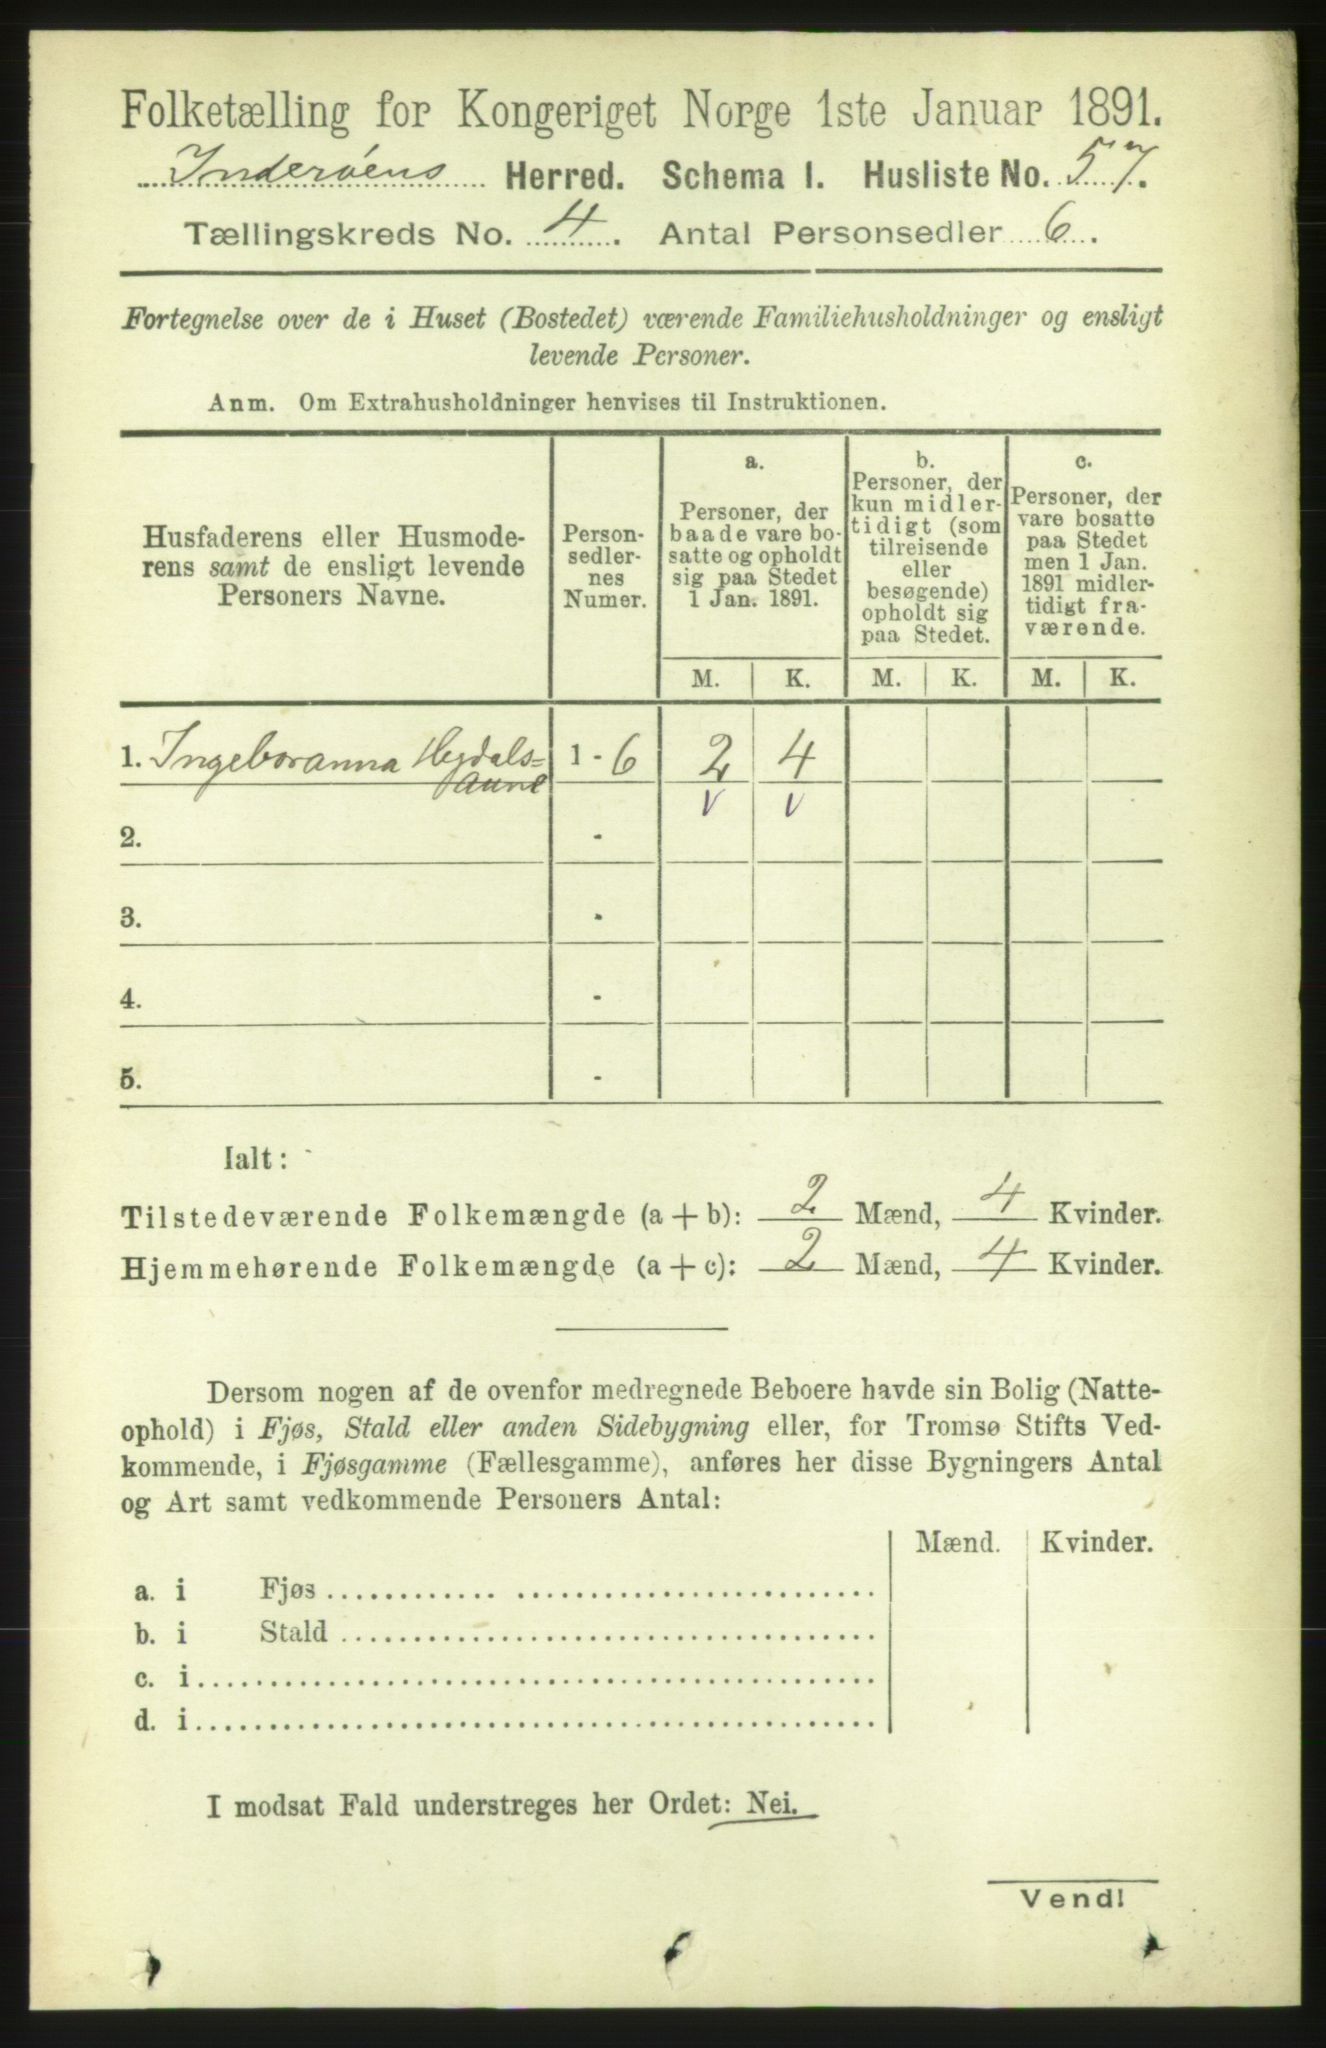 Folketælling for Kongeriget Norge 1ste Januar 1891.
Inderøens Herred. Schema 1. Husliste No. 57.
Tællingskreds No. 4. Antal Personsedler 6.
Fortegnelse over de i Huset (Bostedet) værende Familiehusholdninger og ensligt
levende Personer.
Anm. Om Extrahusholdninger henvises til Instruktionen.
Husfaderens eller Husmode-
rens samt de ensligt levende
Personers Navne.
Person-
sedler-
nes
Numer.
a.
Personer, der
baade vare bo-
satte og opholdt
sig paa Stedet
1 Jan. 1891.
b.
Personer, der
kun midler-
tidigt (som
tilreisende
eller
besøgende)
opholdt sig
paa Stedet.
c.
Personer, der
vare bosatte
paa Stedet
men 1 Jan.
1891 midler-
tidigt fra-
værende.
M. K. M. K. M. K.
1. Ingeboranna Hegdals=
aune 1 - 6 2 4
v v
2. -
3. -
4. -
5. -
Ialt:
Tilstedeværende Folkemængde (a + b): 2 Mænd, 4 Kvinder.
Hjemmehørende Folkemængde (a + c): 2 Mænd, 4 Kvinder.
Dersom nogen af de ovenfor medregnede Beboere havde sin Bolig (Natte-
ophold) i Fjøs, Stald eller anden Sidebygning eller, for Tromsø Stifts Ved-
kommende, i Fjøsgamme (Fællesgamme), anføres her disse Bygningers Antal
og Art samt vedkommende Personers Antal:
Mænd. Kvinder.
a. i Fjøs
b. i Stald
c. i
d. i
I modsat Fald understreges her Ordet: Nei.
Vend!